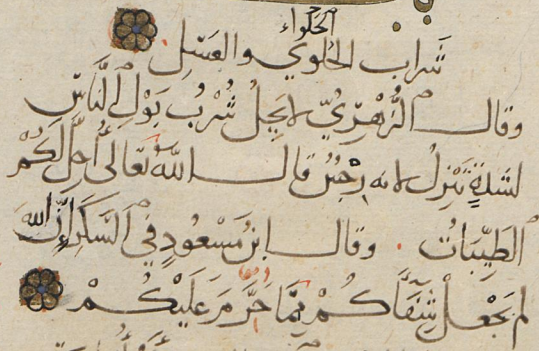 الحلواء
شراب الحلوي والعسل
وقال الزهري لا يحل شرب بول الناس
لشدة تنزل لانه رجس قال الله تعالى أحل لكم
الطيبات وقال ابن مسعود في السكر إن الله
لم يجعل شفاكم فيما حرم عليكم